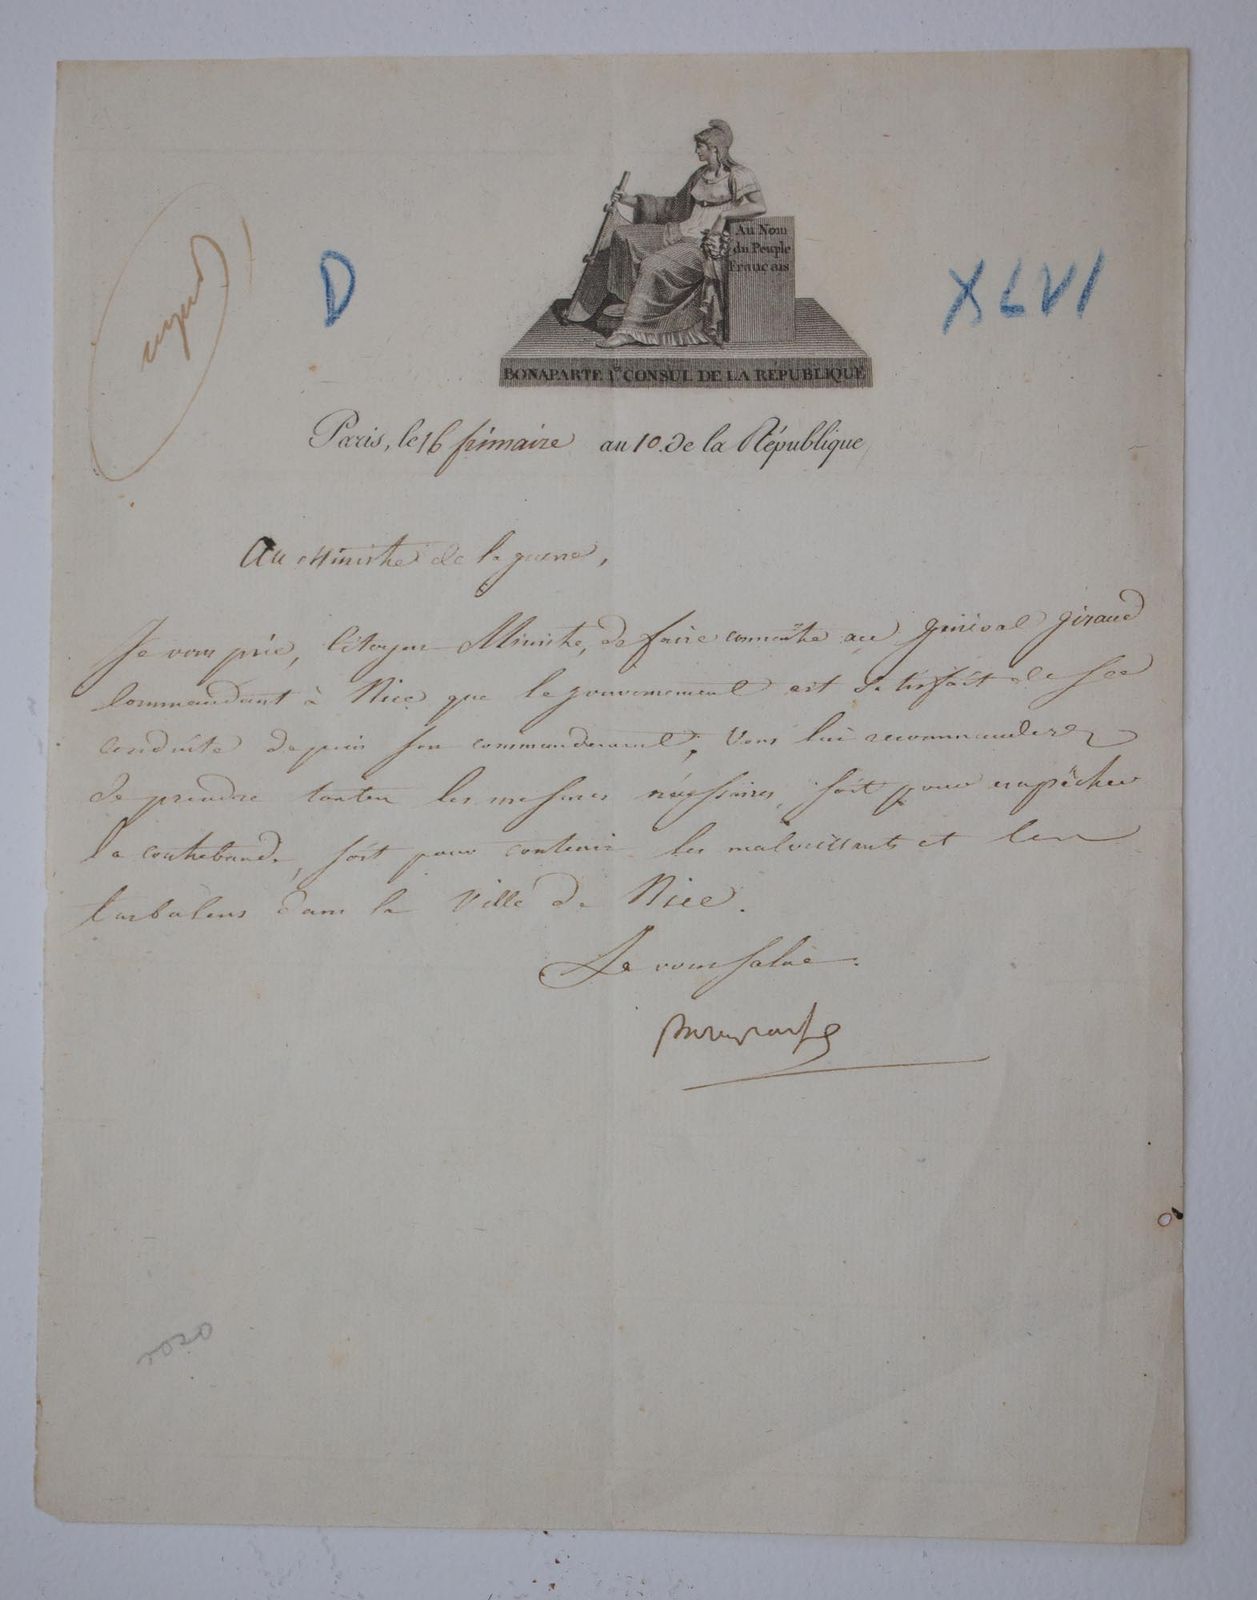 urgend
D
XLVI
Au Nom
du Peuple
Français
BONAPARTE 1er CONSUL DE LA RÉPUBLIQUE
Paris, le 16 frimaire an 10. de la République
Au Ministre de la guerre,
Je vous prie, Citoyen Ministre, de faire connoître au général Giraud
Commandant à Nice que le gouvernement est satisfait de sa
conduite depuis son commandement, Vous lui recommanderez
de prendre toutes les mesures nécessaires, soit pour empêcher
la contrebande, soit pour contenir les malveillants et les
turbulens dans la Ville de Nice.
Je vous salue.
Bonaparte